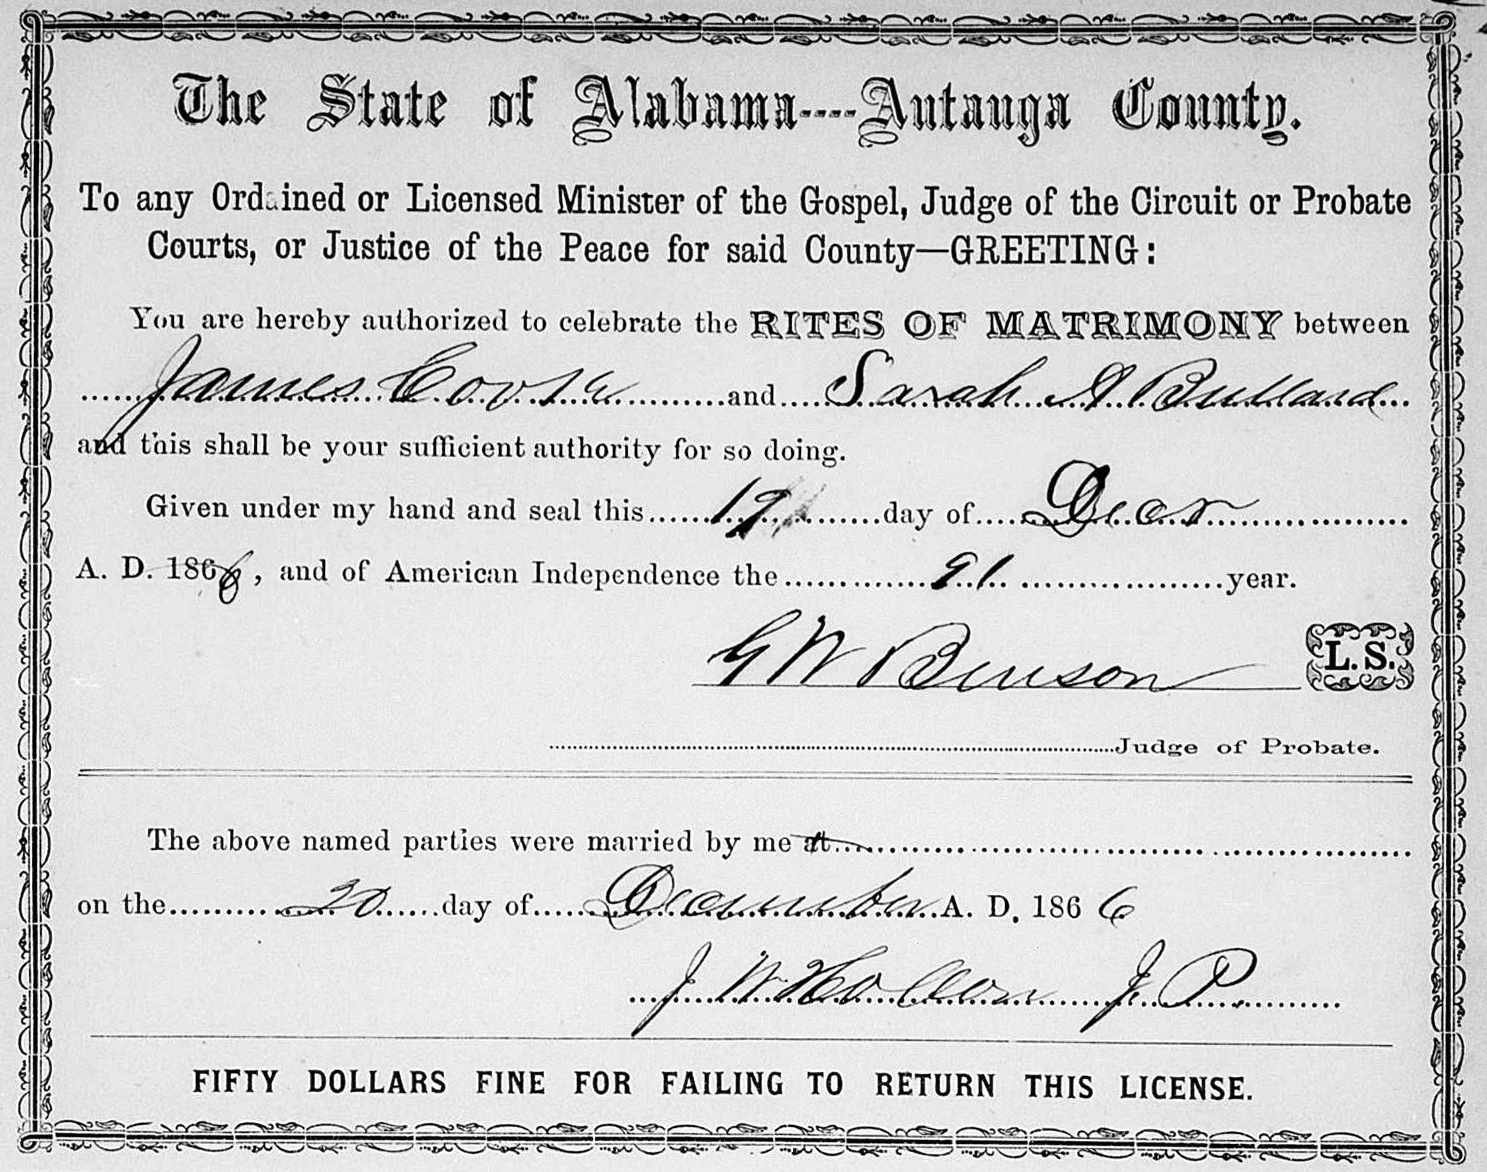 The State of Alabama----Autauga County.
To any Ordained or Licensed Minister of the Gospel, Judge of the Circuit or Probate
Courts, or Justice of the Peace for said County—GREETING:
You are hereby authorized to celebrate the RITES OF MATRIMONY between
James and Sarah A Bullard
and this shall be your sufficient authority for so doing.
Given under my hand and seal this 19 day of Decr
A. D. 1866, and of American Independence the 91 year.
G W Benson L. S.
Judge of Probate.
The above named parties were married by me at
on the 20 day of December A. D. 186 6
J W J. P.
FIFTY DOLLARS FINE FOR FAILING TO RETURN THIS LICENSE.